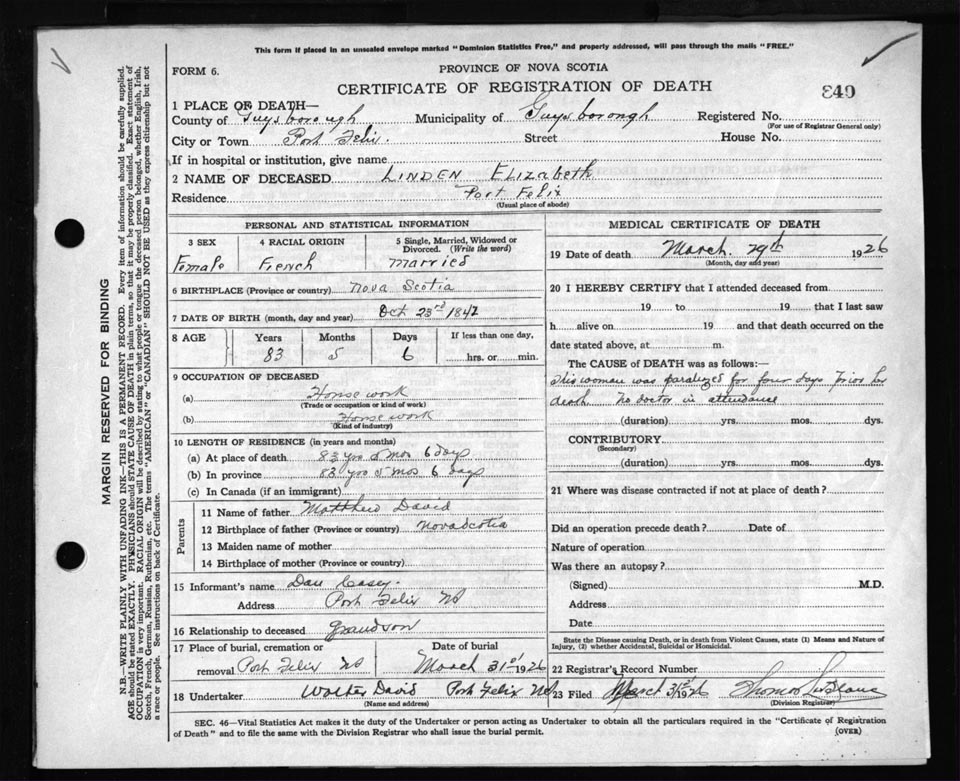 This form if placed in an unsealed envelope marked "Dominion Statistics Free," and properly addressed, will pass through the mails "FREE."
FORM 6.
PROVINCE OF NOVA SCOTIA
CERTIFICATE OF REGISTRATION OF DEATH
849
1 PLACE OF DEATH—
County of Guysborough Municipality of Guysborough Registered No.
(For use of Registrar General only)
City or Town Port Felix. Street House No.
If in hospital or institution, give name
2 NAME OF DECEASED LINDEN ELIZABETH
Residence Port Felix
(Usual place of abode)
PERSONAL AND STATISTICAL INFORMATION
3 SEX 4 RACIAL ORIGIN 5 Single, Married, Widowed or Divorced. (Write the word)
Female French Married
6 BIRTHPLACE (Province or country) Nova Scotia
7 DATE OF BIRTH (month, day and year) Oct 23rd 1842
8 AGE Years Months Days If less than one day,
83 5 6 hrs. or min.
9 OCCUPATION OF DECEASED
(a) House work
(Trade or occupation or kind of work)
(b) House work
(Kind of industry)
10 LENGTH OF RESIDENCE (in years and months)
(a) At place of death 83 yrs 5 mos 6 days
(b) In province 83 yrs 5 mos 6 days
(c) In Canada (if an immigrant)
Parents
11 Name of father Matthew David
12 Birthplace of father (Province or country) Nova Scotia
13 Maiden name of mother
14 Birthplace of mother (Province or country)
15 Informant's name Dan Casey.
Address Port Felix NS
16 Relationship to deceased Grandson
17 Place of burial, cremation or removal Port Felix NS
Date of burial March 31st 1926
18 Undertaker Walter David Port Felix NS
(Name and address)
MEDICAL CERTIFICATE OF DEATH
19 Date of death March. 29th 1926
(Month, day and year)
20 I HEREBY CERTIFY that I attended deceased from
19 to 19 that I last saw
h alive on 19 and that death occurred on the
date stated above, at m.
The CAUSE of DEATH was as follows:—
This woman was paralized for four days Prior to
death no doctor in attendance
(duration) yrs. mos. dys.
CONTRIBUTORY
(Secondary)
(duration) yrs. mos. dys.
21 Where was disease contracted if not at place of death?
Did an operation precede death? Date of
Nature of operation
Was there an autopsy?
(Signed) M.D.
Address
Date
State the Disease causing Death, or in death from Violent Causes, state (1) Means and Nature of
Injury, (2) whether Accidental, Suicidal or Homicidal.
22 Registrar's Record Number
23 Filed March 31st 1926 Thomas LeBlanc
(Division Registrar)
SEC. 46—Vital Statistics Act makes it the duty of the Undertaker or person acting as Undertaker to obtain all the particulars required in the "Certificate of Registration
of Death" and to file the same with the Division Registrar who shall issue the burial permit.
(OVER)
MARGIN RESERVED FOR BINDING
N.B.—WRITE PLAINLY WITH UNFADING INK—THIS IS A PERMANENT RECORD. Every item of information should be carefully supplied.
AGE should be stated EXACTLY. PHYSICIANS should STATE CAUSE OF DEATH in plain terms, so that it may be properly classified. Exact statement of
OCCUPATION is very important. RACIAL ORIGIN will be described by stating to what people or tongue the deceased person belonged, whether English, Irish,
Scotch, French, German, Russian, Ruthenian, etc. The terms "AMERICAN" or "CANADIAN" SHOULD NOT BE USED as they express citizenship but not
a race or people. See instructions on back of Certificate.